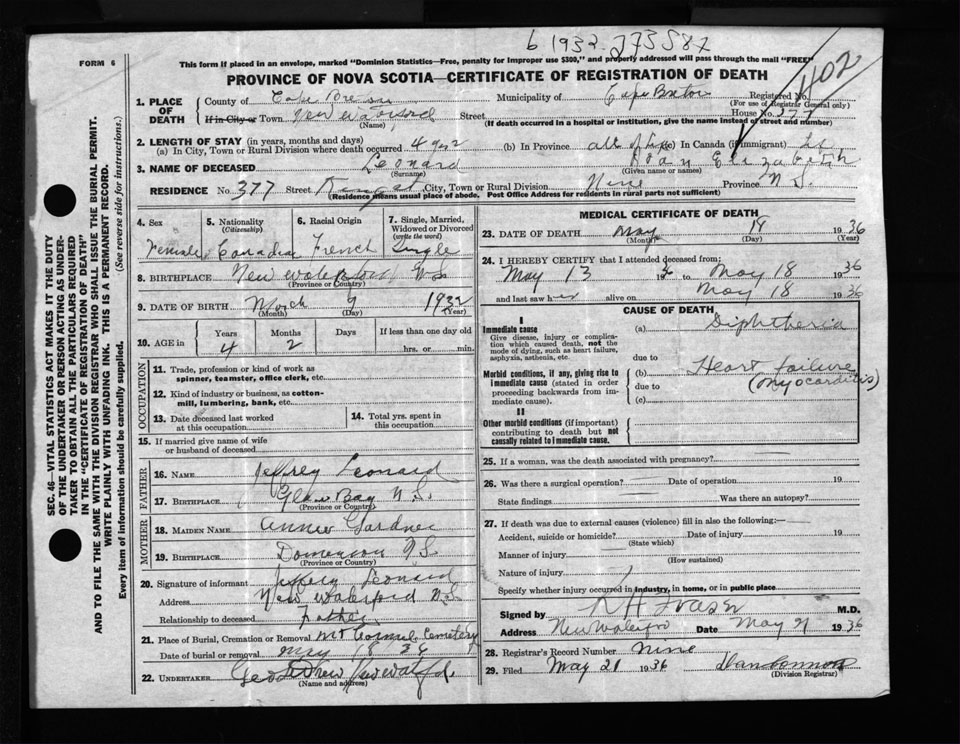 6 1932. 273587
402
FORM 6
This form if placed in an envelope, marked "Dominion Statistics—Free, penalty for improper use $300," and properly addressed will pass through the mail "FREE"
PROVINCE OF NOVA SCOTIA—CERTIFICATE OF REGISTRATION OF DEATH
SEC. 46—VITAL STATISTICS ACT MAKES IT THE DUTY
OF THE UNDERTAKER OR PERSON ACTING AS UNDER-
TAKER TO OBTAIN ALL THE PARTICULARS REQUIRED
IN THE "CERTIFICATE OF REGISTRATION OF DEATH"
AND TO FILE THE SAME WITH THE DIVISION REGISTRAR WHO SHALL ISSUE THE BURIAL PERMIT.
WRITE PLAINLY WITH UNFADING INK. THIS IS A PERMANENT RECORD.
Every item of information should be carefully supplied. (See reverse side for instructions.)
1. PLACE OF DEATH
County of Cape Breton Municipality of Cape Breton Registered No.
(For use of Registrar General only)
If in City or Town New Waterford Street House No. 377
(Name) (If death occurred in a hospital or institution, give the name instead of street and number)
2. LENGTH OF STAY (in years, months and days)
(a) In City, Town or Rural Division where death occurred 4 yrs 2 (b) In Province all of life (c) In Canada (if immigrant)
3. NAME OF DECEASED Leonard Joan Elizabeth
(Surname) (Given name or names)
RESIDENCE No. 377 Street King St City, Town or Rural Division Nine Province N S.
(Residence means usual place of abode. Post Office Address for residents in rural parts not sufficient)
4. Sex 5. Nationality (Citizenship) 6. Racial Origin 7. Single, Married, Widowed or Divorced (write the word)
Female Canadian French Single
8. BIRTHPLACE New Waterford N S
(Province or Country)
9. DATE OF BIRTH March 9 1932
(Month) (Day) (Year)
10. AGE in Years Months Days If less than one day old
4 2 hrs. or min.
OCCUPATION
11. Trade, profession or kind of work as spinner, teamster, office clerk, etc.
12. Kind of industry or business, as cotton-mill, lumbering, bank, etc.
13. Date deceased last worked at this occupation
14. Total yrs. spent in this occupation
15. If married give name of wife or husband of deceased
FATHER
16. NAME Jeffrey Leonard
17. BIRTHPLACE Glace Bay N S.
(Province or Country)
MOTHER
18. MAIDEN NAME Annie Gardner
19. BIRTHPLACE Dominion N S
(Province or Country)
20. Signature of informant Jeffery Leonard
Address New Waterford N S
Relationship to deceased Father
21. Place of Burial, Cremation or Removal Mt Carmel Cemetery
Date of burial or removal May 18 36
22. UNDERTAKER New Waterford.
(Name and address)
MEDICAL CERTIFICATE OF DEATH
23. DATE OF DEATH May 18 1936
(Month) (Day) (Year)
24. I HEREBY CERTIFY that I attended deceased from:
May 13 19 to May 18 1936
and last saw her alive on May 18 1936
CAUSE OF DEATH
I
Immediate cause
Give disease, injury or complication which caused death, not the mode of dying, such as heart failure, asphyxia, asthenia, etc.
(a) Diphtheria
due to
Morbid conditions, if any, giving rise to immediate cause (stated in order proceeding backwards from immediate cause).
(b) Heart failure
due to (myocarditis)
(c)
II
Other morbid conditions (if important) contributing to death but not causally related to immediate cause.
25. If a woman, was the death associated with pregnancy?
26. Was there a surgical operation? Date of operation 19
State findings Was there an autopsy?
27. If death was due to external causes (violence) fill in also the following:—
Accident, suicide or homicide? Date of injury 19
(State which)
Manner of injury
(How sustained)
Nature of injury
Specify whether injury occurred in industry, in home, or in public place
Signed by H Fraser M.D.
Address New Waterford Date May 21 1936
28. Registrar's Record Number nine
29. Filed May 21 1936
(Division Registrar)